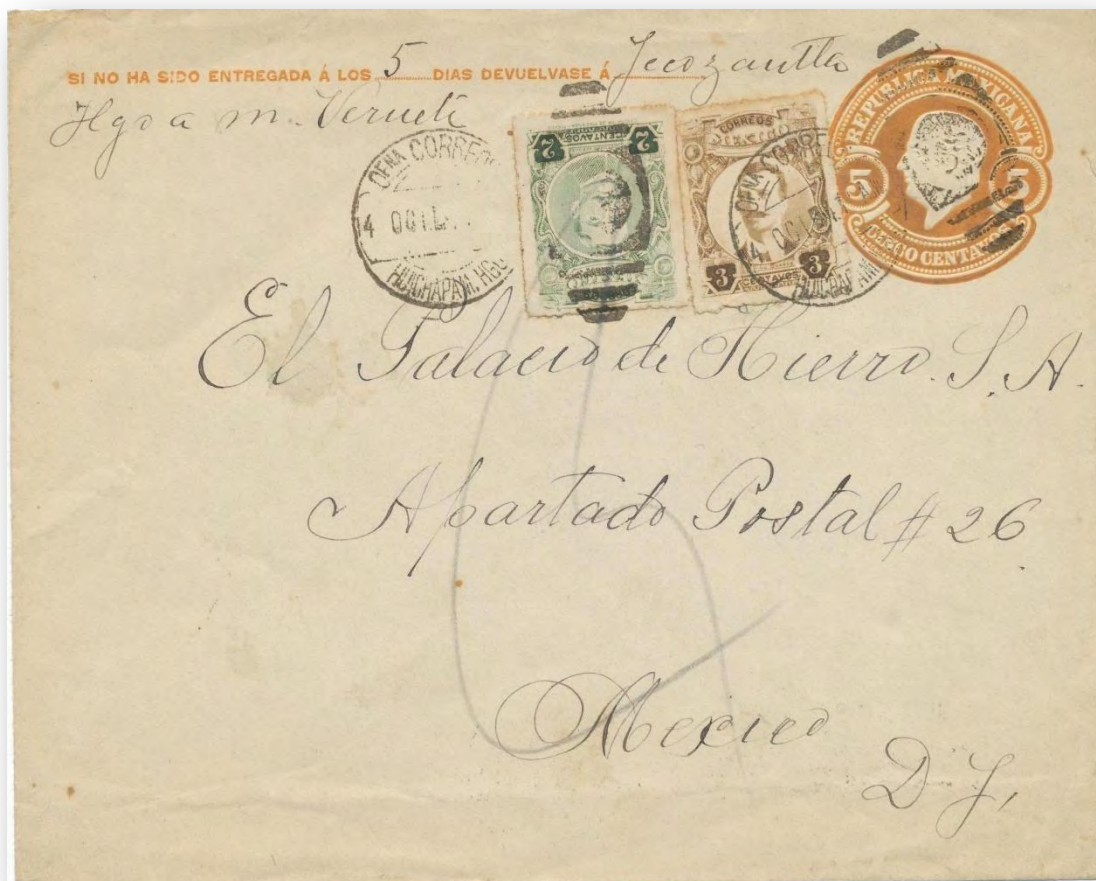 SI NO HA SIDO ENTREGADA Á LOS 5 DIAS DEVUELVASE Á Jecozautla
Hgo a m. Verueti
OFNA CORREOS
4 OCT
HUICHAPAM. HGO
2 CENTAVOS 2
CORREOS
MEXICO
3 CENTAVOS 3
OFNA CORREO
4 OCT
HUICHAPAM
REPUBLICA MEXICANA
5 5
CINCO CENTAVOS
El Palacio de Hierro. S. A.
Apartado Postal # 26
Mexico
D. F.